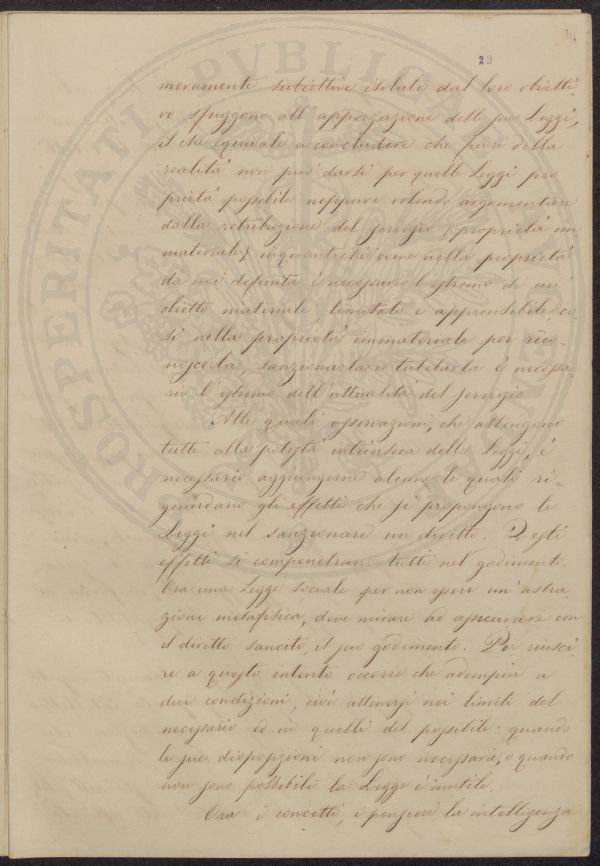 22
meramente subiettive isolate dal loro obietti-
vo sfuggono all' apprezazione delle sue Leggi,
il che equivale a concludere che fuori della
realità non può darsi per quelle Leggi pro
prietà possibile neppure volendo argomentare
dalla retribuzione del servizio (proprietà im
materiale) inquantochè come nella proprietà
da noi definita è necessario l'estremo di un'
obietto materiale limitato e apprensibile co-
sì nella proprietà immateriale per rico-
noscerla, sanzionarla e tutelarla è necessa-
rio l'estremo dell'attualità del servizio.
Alle quali osservazioni, che attengono
tutte alla potestà intrinseca delle Leggi, è
necessario aggiungerne alcune le quali ri-
guardano gli effetti che si propongono le
Leggi nel sanzionare un diritto. Questi
effetti si compenetrano tutti nel godimento.
Ora una Legge sociale per non essere un'astra
zione metafisica, deve mirare ad assicurare con
il diritto sancito, il suo godimento. Per riusci
re a questo intento occorre che adempia a
due condizioni, cioè attenersi nei limiti del
necessario ed in quelli del possibile: quando
le sue disposizioni non sono necessarie, o quando
non sono possibili la Legge è inutile.
Ora i concetti, i pensieri, la intelligenza
PROSPERITATI PVBLICAE